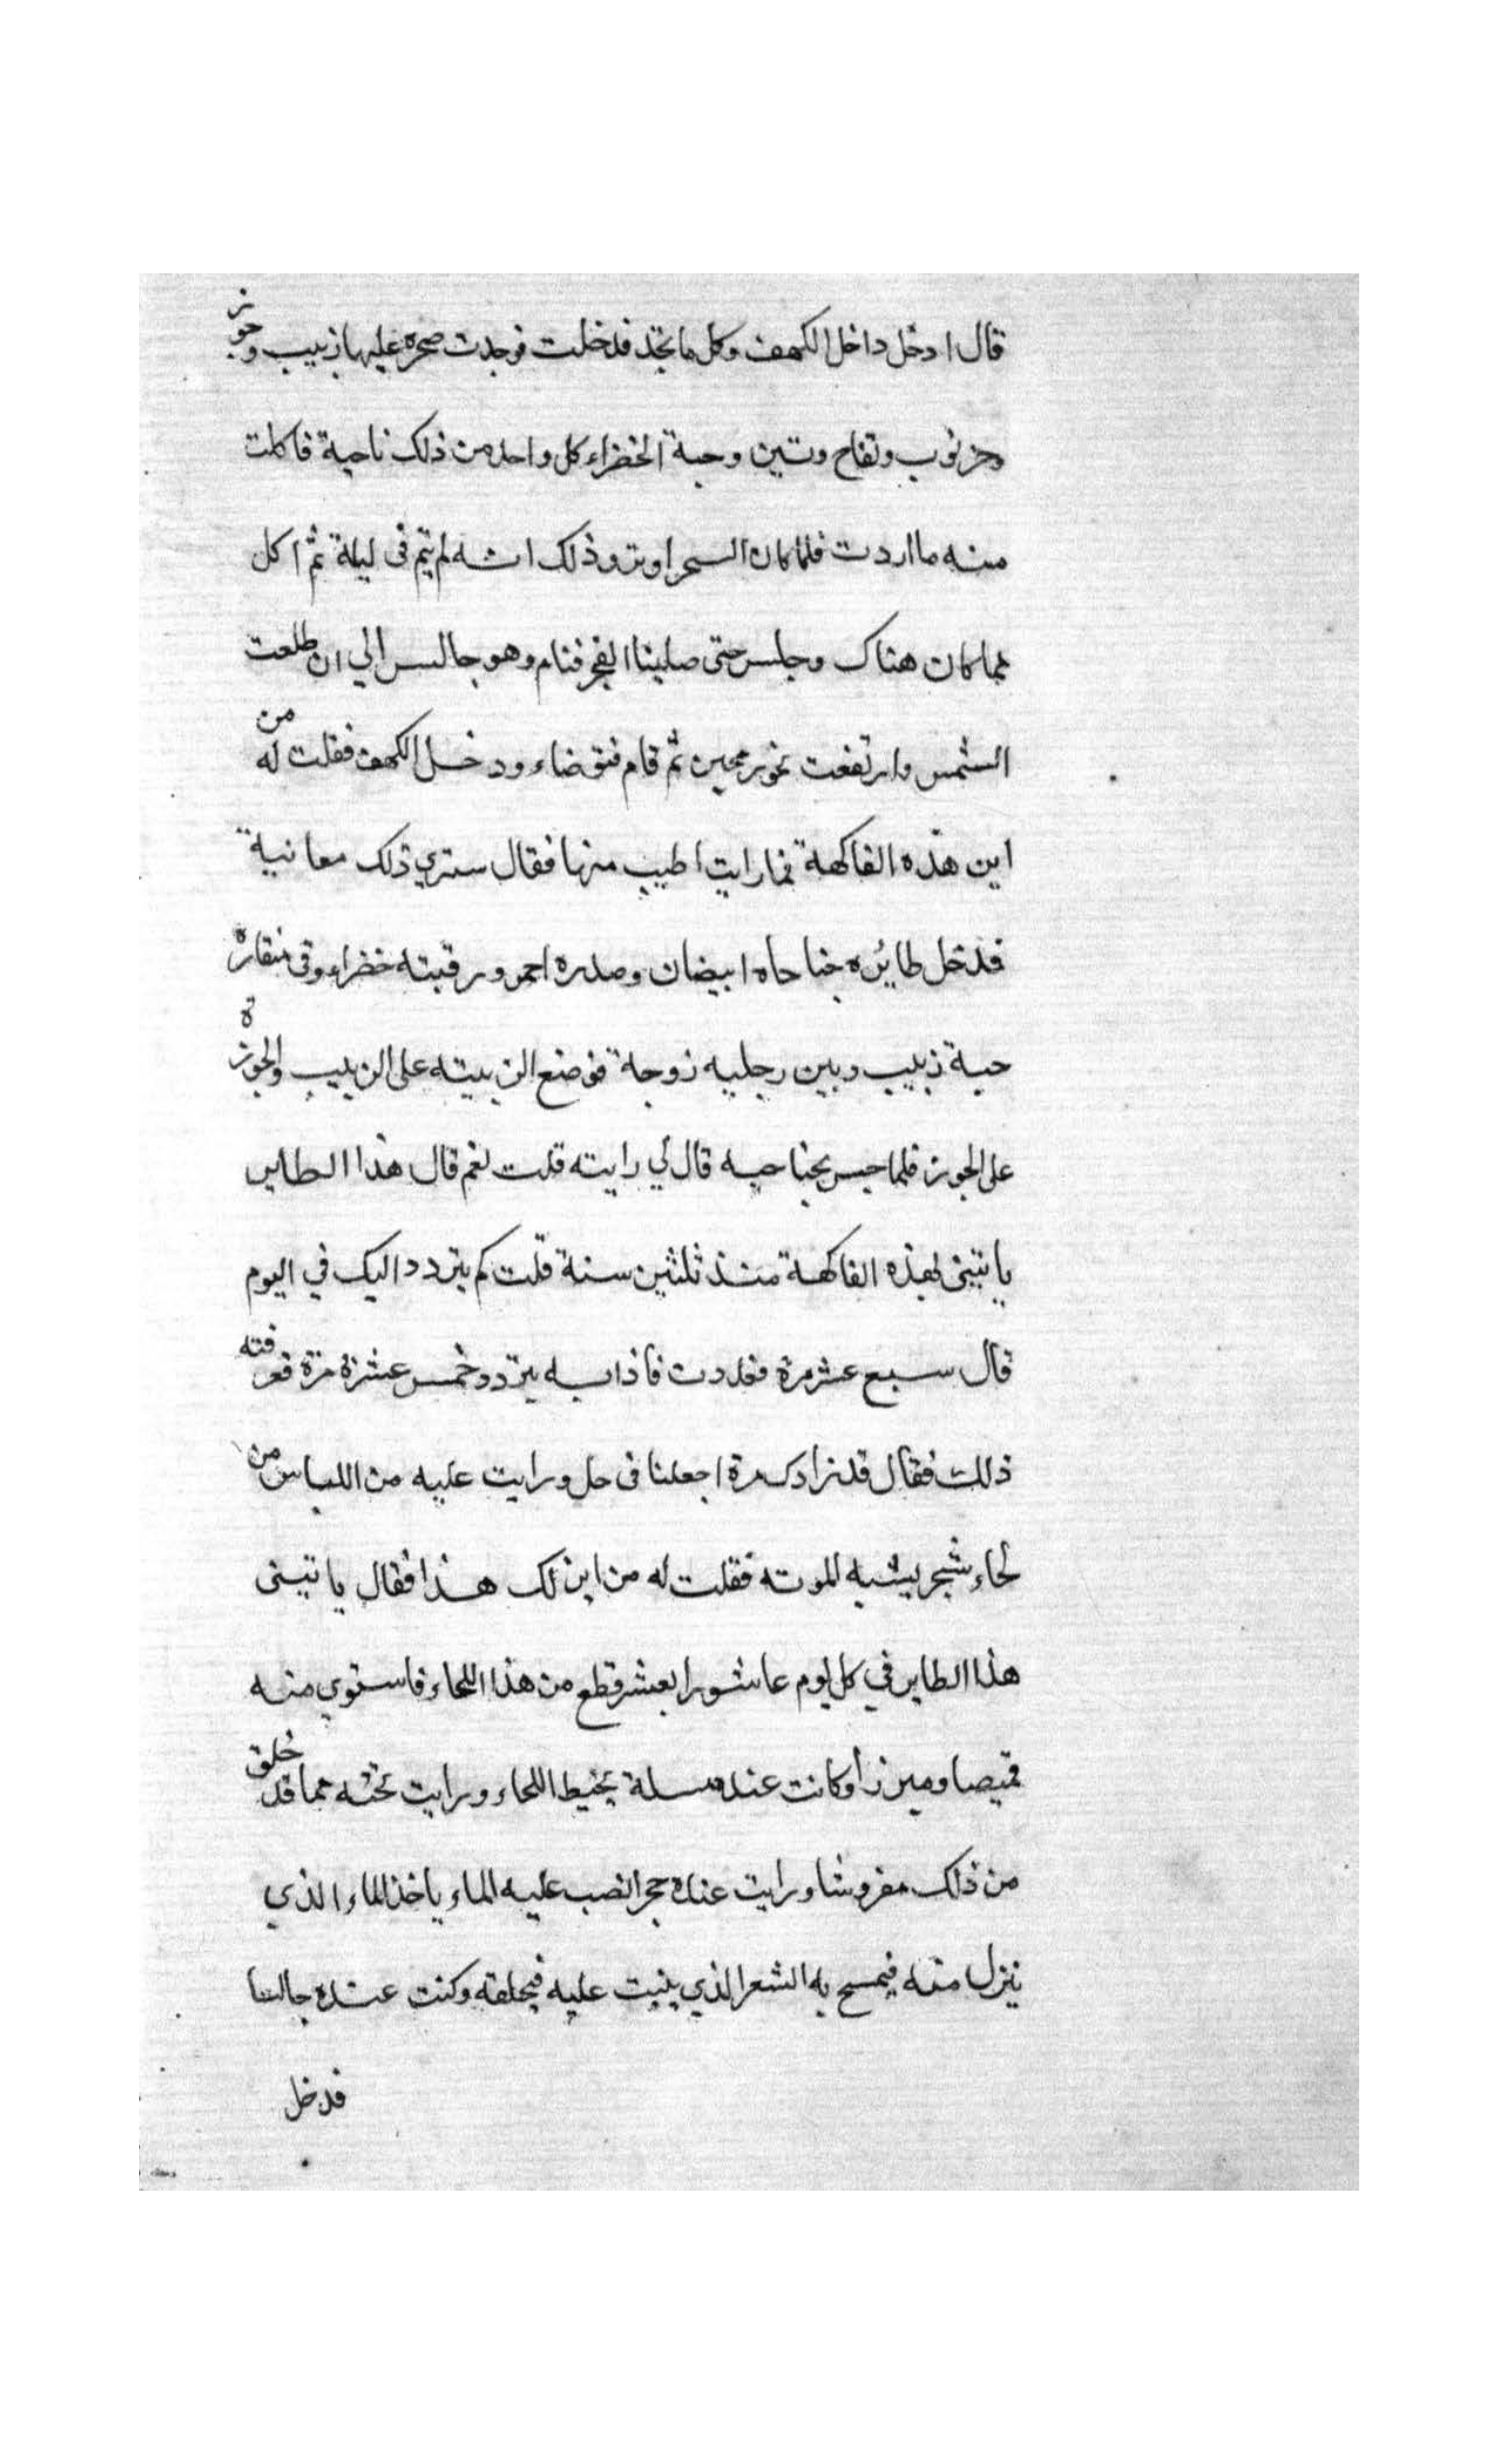 قال ادخل داخل الكهف وكل ما تجد فدخلت فوجدت صخره عليها زبيب وجوز
وخرنوب وتفاح وتين وحبة الخضراء كل واحد من ذلك ناحية فاكلت
منه ما اردت فلما كان السحر اوتر وذلك انه لم ينم في ليلة ثم اكل
مما كان هناك وجلس حتى صلينا الفجر فنام وهو جالس الي ان طلعت
الشمس وارتفعت نحو رمحين ثم قام فتوضاء ودخل الكهف فقلت له من
اين هذه الفاكهة فما رايت اطيب منها فقال ستري ذلك معانية
فدخل طائره جناحاه ابيضان وصدره احمر ورقبته خضراء وفي منقاره
حبة زبيب وبين رجليه زوجة فوضع الزبيبته على الزبيب والجوزة
على الجوز فلما حس بجناحيه قال لي رايته قلت نعم قال هذا الطاير
ياتيني بهذه الفاكهة منذ ثلثين سنة قلت كم يتردد اليك في اليوم
قال سبع عشر مرة فعددت فاذا به يتردد خمس عشرة مرة فعرفته
ذلك فقال قد زادك مرة اجعلنا في حل ورايت عليه من اللباس من
لحاء شجر يشبه الموته فقلت له من اين لك هذا فقال ياتيني
هذا الطاير في كل يوم عاشورا بعشر قطع من هذا اللحاء فاستوي منه
قميصا وميزرا وكانت عنده مسلة يخيط اللحاء ورايت تحته مما قد خلق
من ذلك مفروشا ورايت عنده حجرا نصب عليه الماء ياخذ الماء الذي
ينزل منه فيمسح به الشعر الذي ينبت عليه فيحلقه وكنت عنده جالسا
فدخل